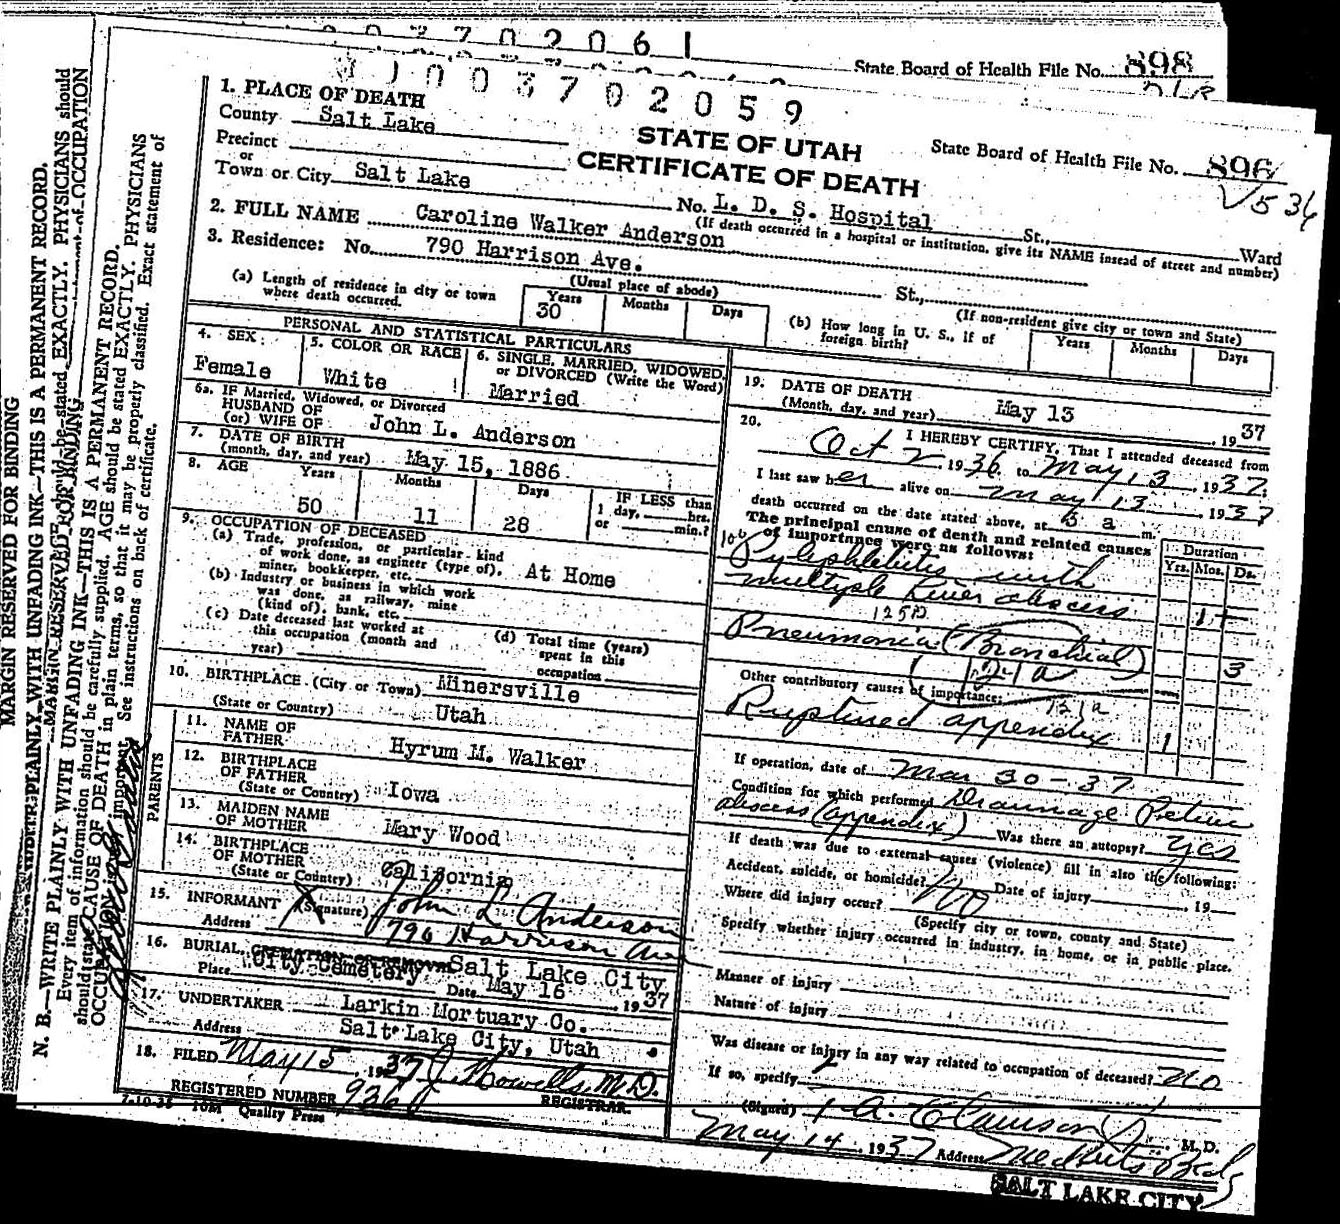 1003702061
State Board of Health File No. 898
1003702059
1. PLACE OF DEATH
County Salt Lake
STATE OF UTAH
CERTIFICATE OF DEATH
State Board of Health File No. 896
V536
Precinct
or
Town or City Salt Lake No. L. D. S. Hospital St., Ward
(If death occurred in a hospital or institution, give its NAME instead of street and number)
2. FULL NAME Caroline Walker Anderson
3. Residence: No. 790 Harrison Ave. St.,
(Usual place of abode)
(If non-resident give city or town and State)
(a) Length of residence in city or town where death occurred. Years 30 Months Days
(b) How long in U. S., if of foreign birth? Years Months Days
PERSONAL AND STATISTICAL PARTICULARS
4. SEX Female
5. COLOR OR RACE White
6. SINGLE, MARRIED, WIDOWED, or DIVORCED (Write the Word) Married
6a. IF Married, Widowed, or Divorced
HUSBAND OF
(or) WIFE OF John L. Anderson
7. DATE OF BIRTH
(month, day, and year) May 15, 1886
8. AGE Years 50 Months 11 Days 28
IF LESS than 1 day, hrs. or min.?
9. OCCUPATION OF DECEASED
(a) Trade, profession, or particular kind of work done, as engineer (type of), miner, bookkeeper, etc. At Home
(b) Industry or business in which work was done, as railway, mine (kind of), bank, etc.
(c) Date deceased last worked at this occupation (month and year)
(d) Total time (years) spent in this occupation
10. BIRTHPLACE (City or Town) Minersville
(State or Country) Utah
PARENTS
11. NAME OF FATHER Hyrum M. Walker
12. BIRTHPLACE OF FATHER
(State or Country) Iowa
13. MAIDEN NAME OF MOTHER Mary Wood
14. BIRTHPLACE OF MOTHER
(State or Country) California
15. INFORMANT X (Signature) John L Anderson
Address 790 Harrison Ave
16. BURIAL, CREMATION OR REMOVAL Salt Lake City
Place City Cemetery Date May 16 1937
17. UNDERTAKER Larkin Mortuary Co.
Address Salt Lake City, Utah
18. FILED May 15, 1937 M.D.
REGISTRAR.
REGISTERED NUMBER 936
7-10-35 10M Quality Press
19. DATE OF DEATH
(Month, day, and year) May 13, 1937
20. I HEREBY CERTIFY, That I attended deceased from
Oct 2, 1936 to May 13, 1937
I last saw her alive on May 13, 1937
death occurred on the date stated above, at 3 a m.
The principal cause of death and related causes of importance were as follows:
Duration
Yrs. Mos. Ds.
Pylephlebitis with
multiple Liver abscess 1+
125B
Pneumonia (Bronchial) 3
Other contributory causes of importance:
121a
Ruptured appendix 1
If operation, date of Mar 30-37
Condition for which performed Drainage
abscess (appendix) Was there an autopsy? yes
If death was due to external causes (violence) fill in also the following:
Accident, suicide, or homicide? No Date of injury 19
Where did injury occur?
(Specify city or town, county and State)
Specify whether injury occurred in industry, in home, or in public place.
Manner of injury
Nature of injury
Was disease or injury in any way related to occupation of deceased? No
If so, specify
(Signed) M. D.
May 14, 1937 Address
SALT LAKE CITY
MARGIN RESERVED FOR BINDING
N. B.—WRITE PLAINLY WITH UNFADING INK—THIS IS A PERMANENT RECORD.
Every item of information should be carefully supplied. AGE should be stated EXACTLY. PHYSICIANS should state CAUSE OF DEATH in plain terms, so that it may be properly classified. Exact statement of OCCUPATION important. See instructions on back of certificate.